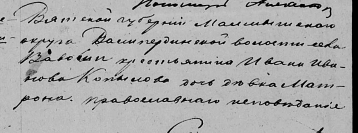 Вятской губернiи Малмыжскаго
округа Васкрецинской волости села
крестьянина Ивана Ива
нова Копысова дочь дѣвка Мат
рона. православнаго исповѣданiе